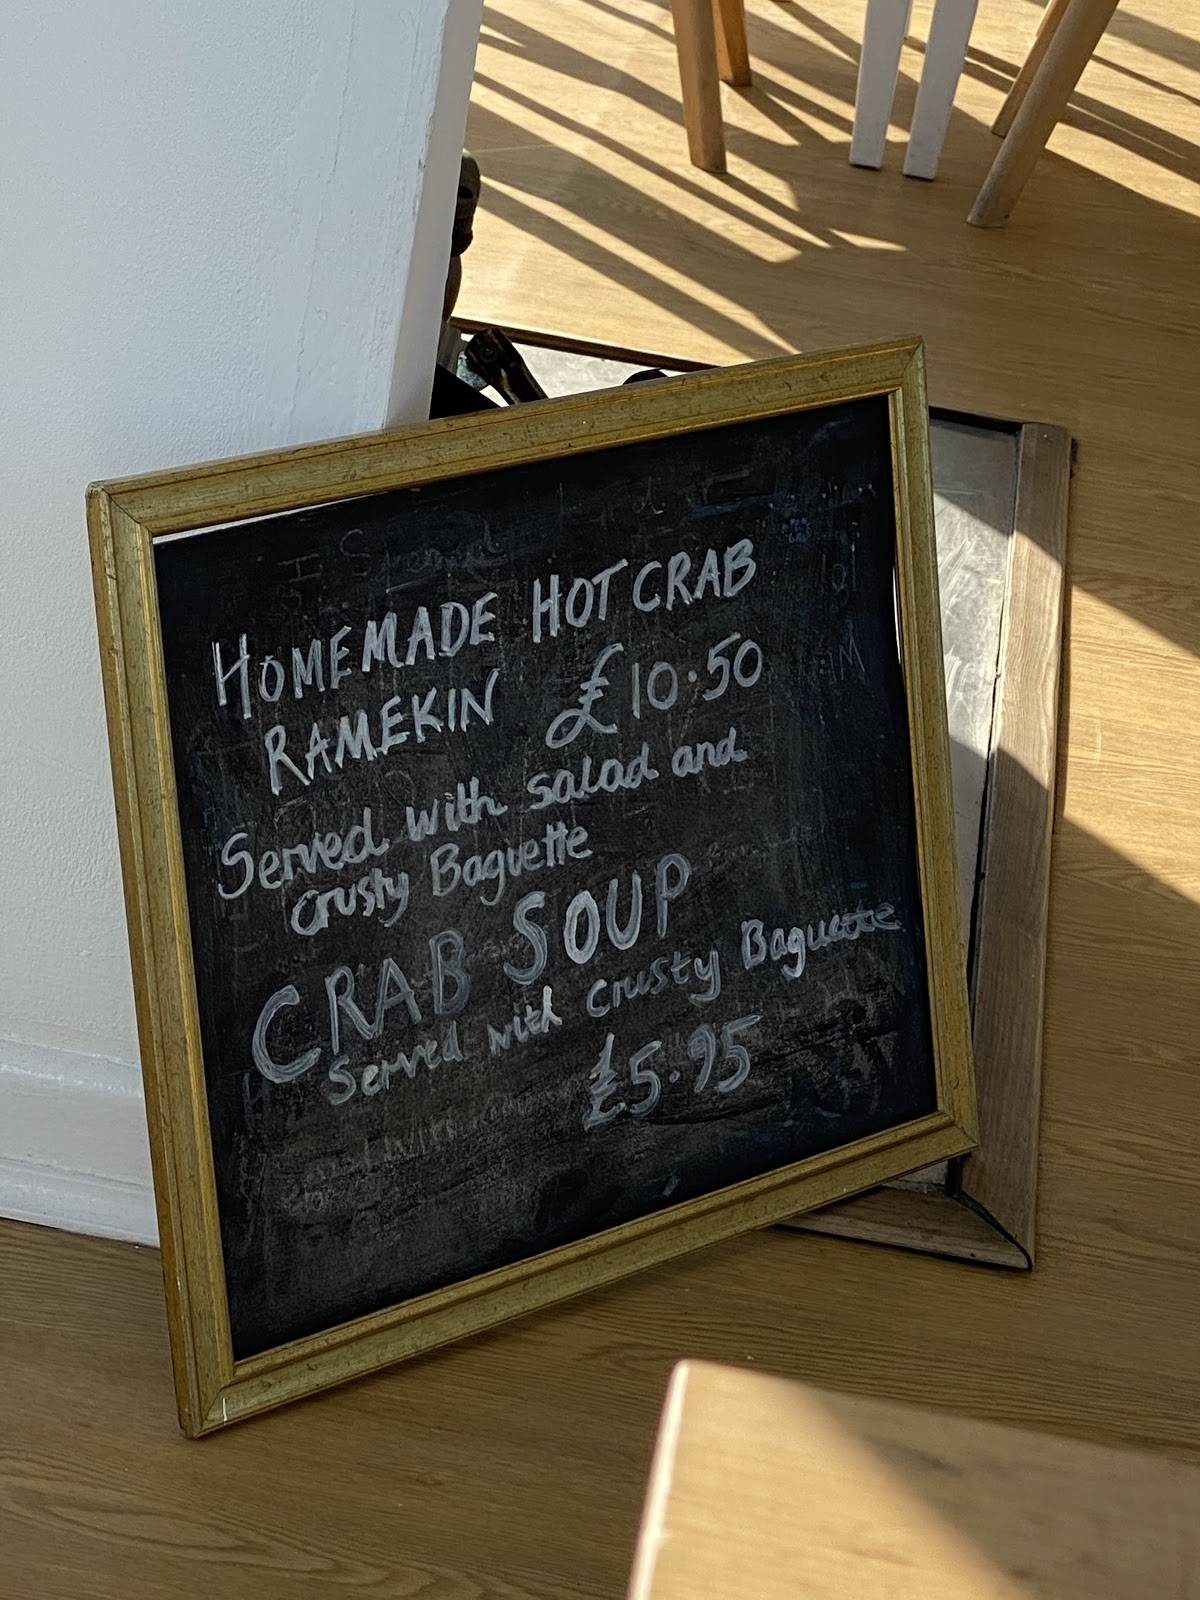 HOMEMADE HOT CRAB
RAMEKIN £10.50
Served with salad and
crusty Baguette
CRAB SOUP
Served with crusty Baguette
£5.95